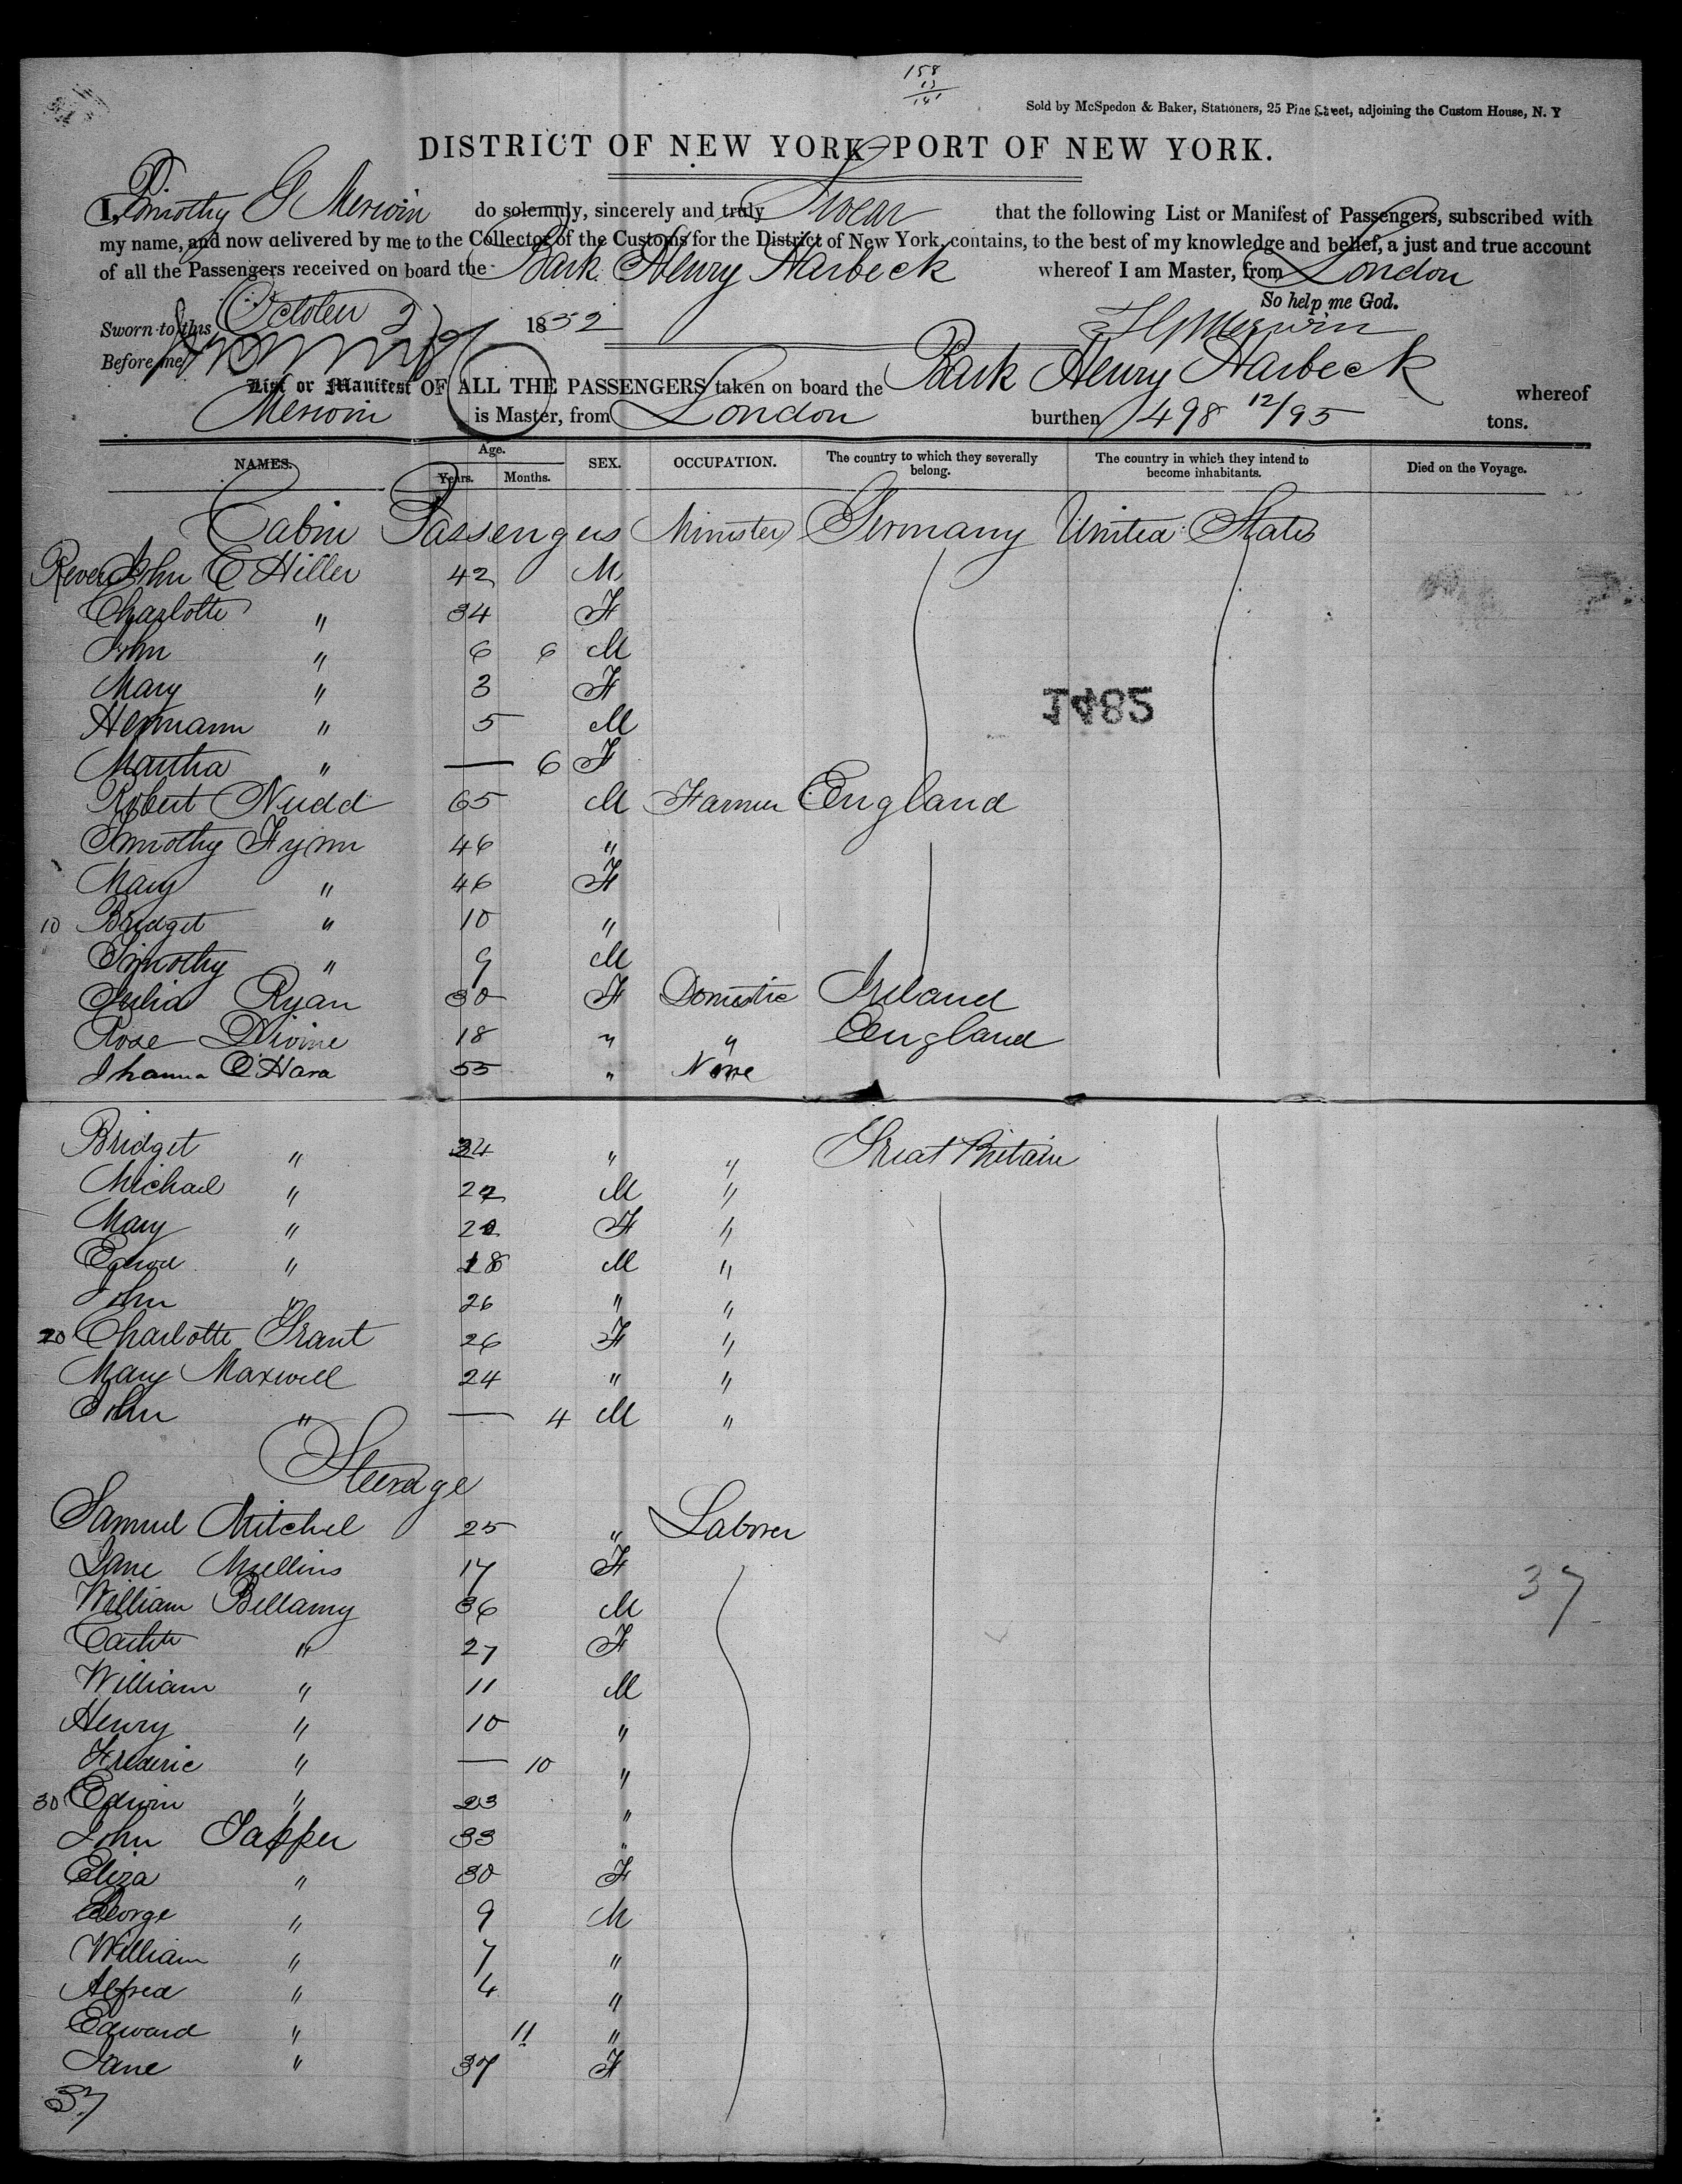 158
13
141
Sold by McSpedon & Baker, Stationers, 25 Pine Street, adjoining the Custom House, N. Y
DISTRICT OF NEW YORK—PORT OF NEW YORK.
I, Timothy G Merwin do solemnly, sincerely and truly Swear that the following List or Manifest of Passengers, subscribed with
my name, and now delivered by me to the Collector of the Customs for the District of New York, contains, to the best of my knowledge and belief, a just and true account
of all the Passengers received on board the Bark Henry Harbeck whereof I am Master, from London
So help me God.
Sworn to this October 2 1852
T G Merwin
Before me
List or Manifest OF ALL THE PASSENGERS taken on board the Bark Henry Harbeck whereof
Merwin is Master, from London burthen 498 12/95 tons.
NAMES. Age. Years. Months. SEX. OCCUPATION. The country to which they severally belong. The country in which they intend to become inhabitants. Died on the Voyage.
Cabin Passengers Minister Germany United States
Reverd John C Hiller 42 M
Charlotte " 34 F
John " 6 6 M
Mary " 3 F
Hermann " 5 M
1482
Martha " — 6 F
Robert Nudd 65 M Farmer England
Timothy Flynn 46 "
Mary " 46 F
10 Bridget " 10 "
Timothy " 9 M
Julia Ryan 30 F Domestic Ireland
Rose Divine 18 " " England
Jhanna O'Hara 55 " None
Bridget " 24 " " Great Britain
Michael " 22 M "
Mary " 20 F "
Edwd " 18 M "
John " 26 " "
20 Charlotte Grant 26 F "
Mary Maxwell 24 " "
John " — 4 M "
Steerage
Samuel Mitchel 25 " Laborer
Jane Mullins 17 F
William Bellamy 36 M
37
" 27 F
William " 11 M
Henry " 10 "
Frederic " — 10 "
30 Edwin " 23 "
John Tapper 33 "
Eliza " 30 F
George " 9 M
William " 7 "
Alfred " 4 "
Edward " 11 "
Jane " 37 F
37